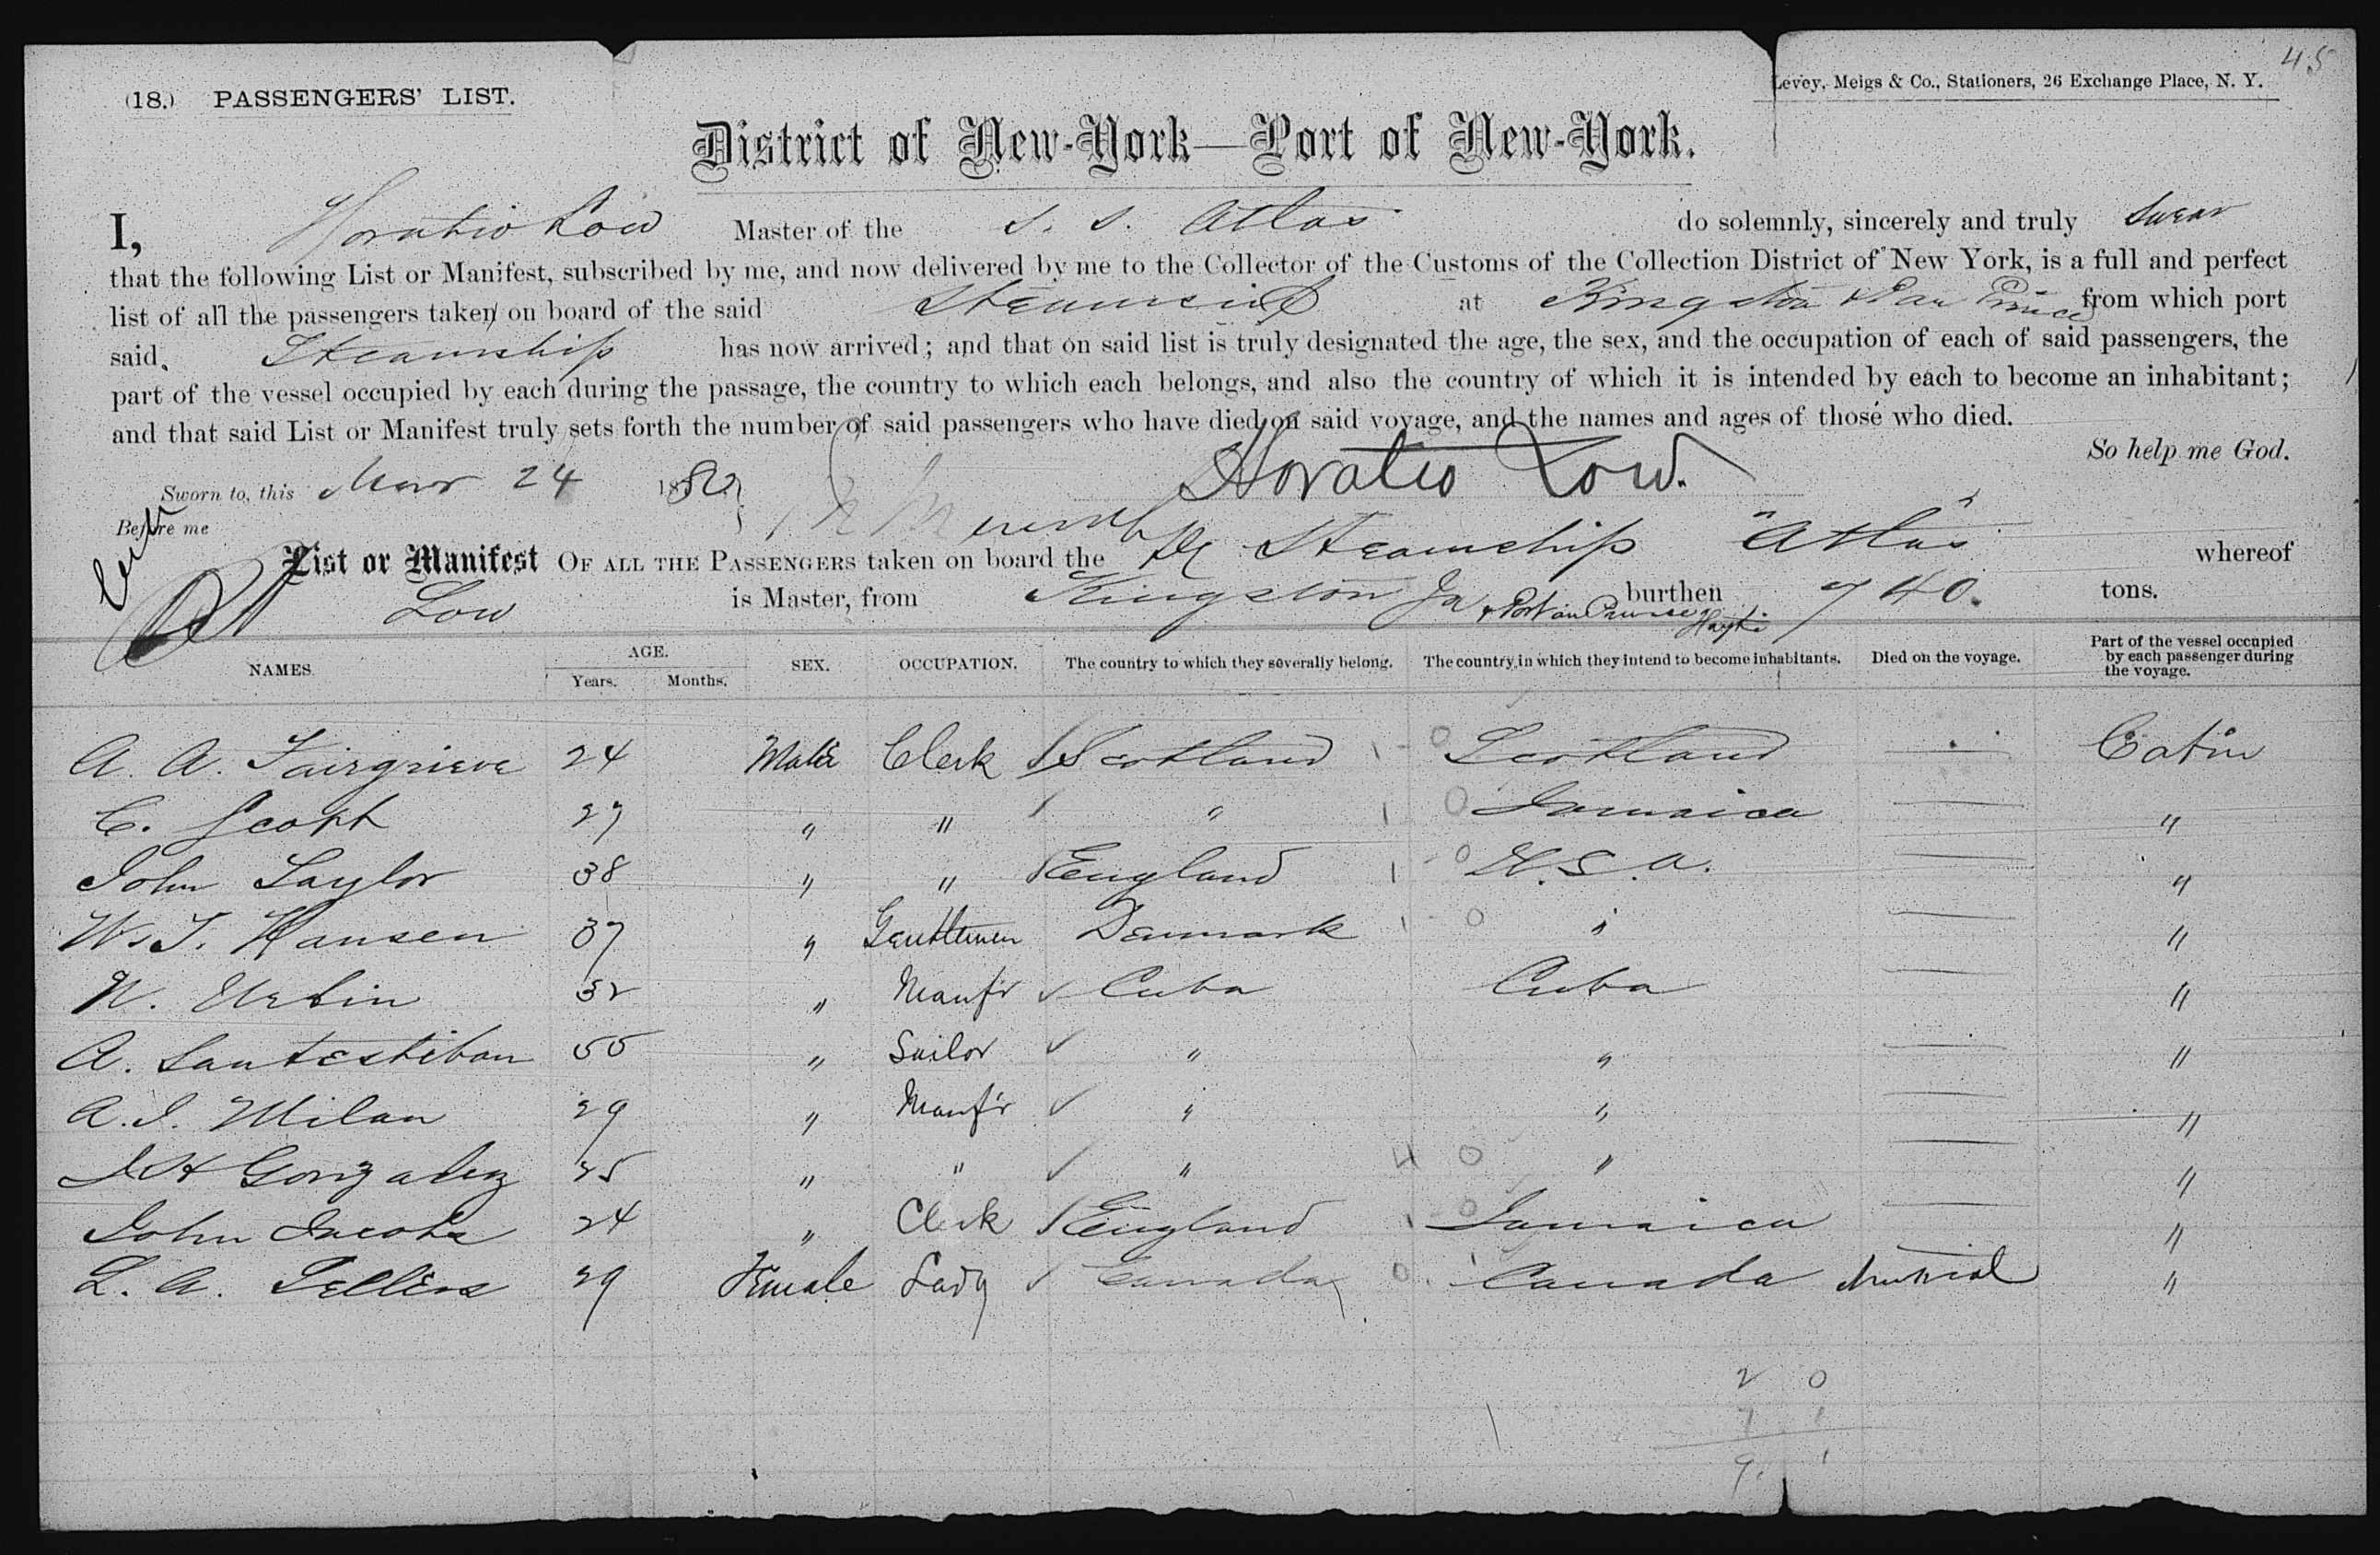 45
(18.) PASSENGERS' LIST.
Levey, Meigs & Co., Stationers, 26 Exchange Place, N. Y.
District of New-York—Port of New-York.
I, Horatio Low Master of the S. S. Atlas do solemnly, sincerely and truly swear
that the following List or Manifest, subscribed by me, and now delivered by me to the Collector of the Customs of the Collection District of New York, is a full and perfect
list of all the passengers taken on board of the said Steamship at Kingston & Pau Prince from which port
said Steamship has now arrived; and that on said list is truly designated the age, the sex, and the occupation of each of said passengers, the
part of the vessel occupied by each during the passage, the country to which each belongs, and also the country of which it is intended by each to become an inhabitant;
and that said List or Manifest truly sets forth the number of said passengers who have died on said voyage, and the names and ages of those who died.
So help me God.
Sworn to, this Mar 24 188 Horatio Low.
Before me
List or Manifest OF ALL THE PASSENGERS taken on board the Steamship "Atlas" whereof
Low is Master, from Kingston Ja & Port au Prince Hayti burthen 740. tons.
NAMES AGE. Years. Months. SEX. OCCUPATION. The country to which they severally belong. The country in which they intend to become inhabitants. Died on the voyage. Part of the vessel occupied by each passenger during the voyage.
A. A. Fairgrieve 24 Male Clerk Scotland 1 0 Scotland — Cabin
C. Scott 27 " " " 1 0 Jamaica — "
John Taylor 38 " " England 1 0 U.S.A. — "
W. J. Hansen 37 " Gentlemen Denmark 1 0 " — "
N. Urbin 32 " Manfr Cuba Cuba — "
A. Santestiban 55 " Sailor " " — "
A. J. Milan 29 " Manfr " " — "
J H Gonzalez 25 " " " 4 0 " — "
John Jacobs 24 " Clerk England 1 0 Jamaica — "
L. A. Sellers 29 Female Lady Canada 0 1 Canada — "
2 0
7 1
9 1